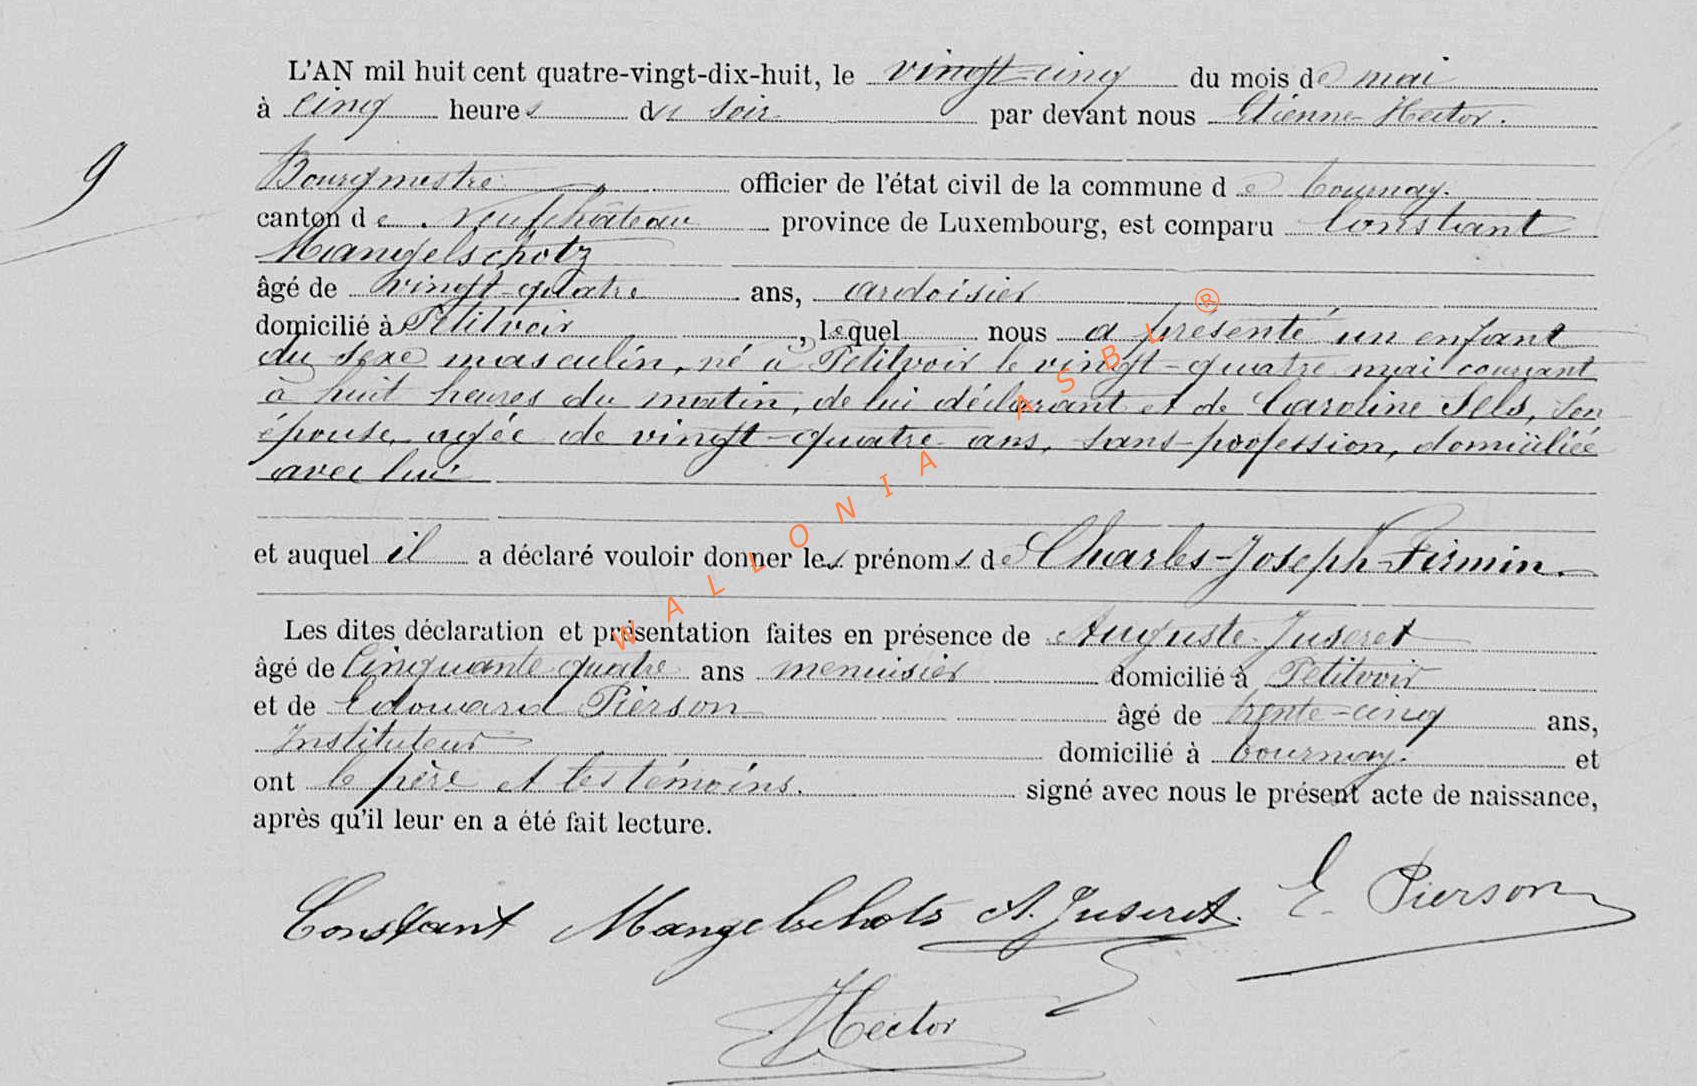 L'AN mil huit cent quatre-vingt-dix-huit, le vingt-cinq du mois de mai
à cinq heures du soir par devant nous Etienne Hector.
9
Bourgmestre officier de l'état civil de la commune de Tournay.
canton de Neufchâteau province de Luxembourg, est comparu Constant
Mangelschotz
âgé de vingt-quatre ans, ardoisier
domicilié à Petitvoir, lequel nous a présenté un enfant
du sexe masculin, né à Petitvoir le vingt-quatre mai courant
à huit heures du matin, de lui déclarant et de Caroline Sels, son
épouse, agée de vingt-quatre ans, sans profession, domiciliée
avec lui
et auquel il a déclaré vouloir donner les prénoms de Charles-Joseph-Firmin.
Les dites déclaration et présentation faites en présence de Auguste Juseret
âgé de Cinquante-quatre ans menuisier domicilié à Petitvoir
et de Edouard Pierson âgé de trente-cinq ans,
Instituteur domicilié à Tournay. et
ont le père et les témoins. signé avec nous le présent acte de naissance,
après qu'il leur en a été fait lecture.
Constant Mangelschots A. Juseret. E. Pierson
Hector
WALLONIA ASBL ®